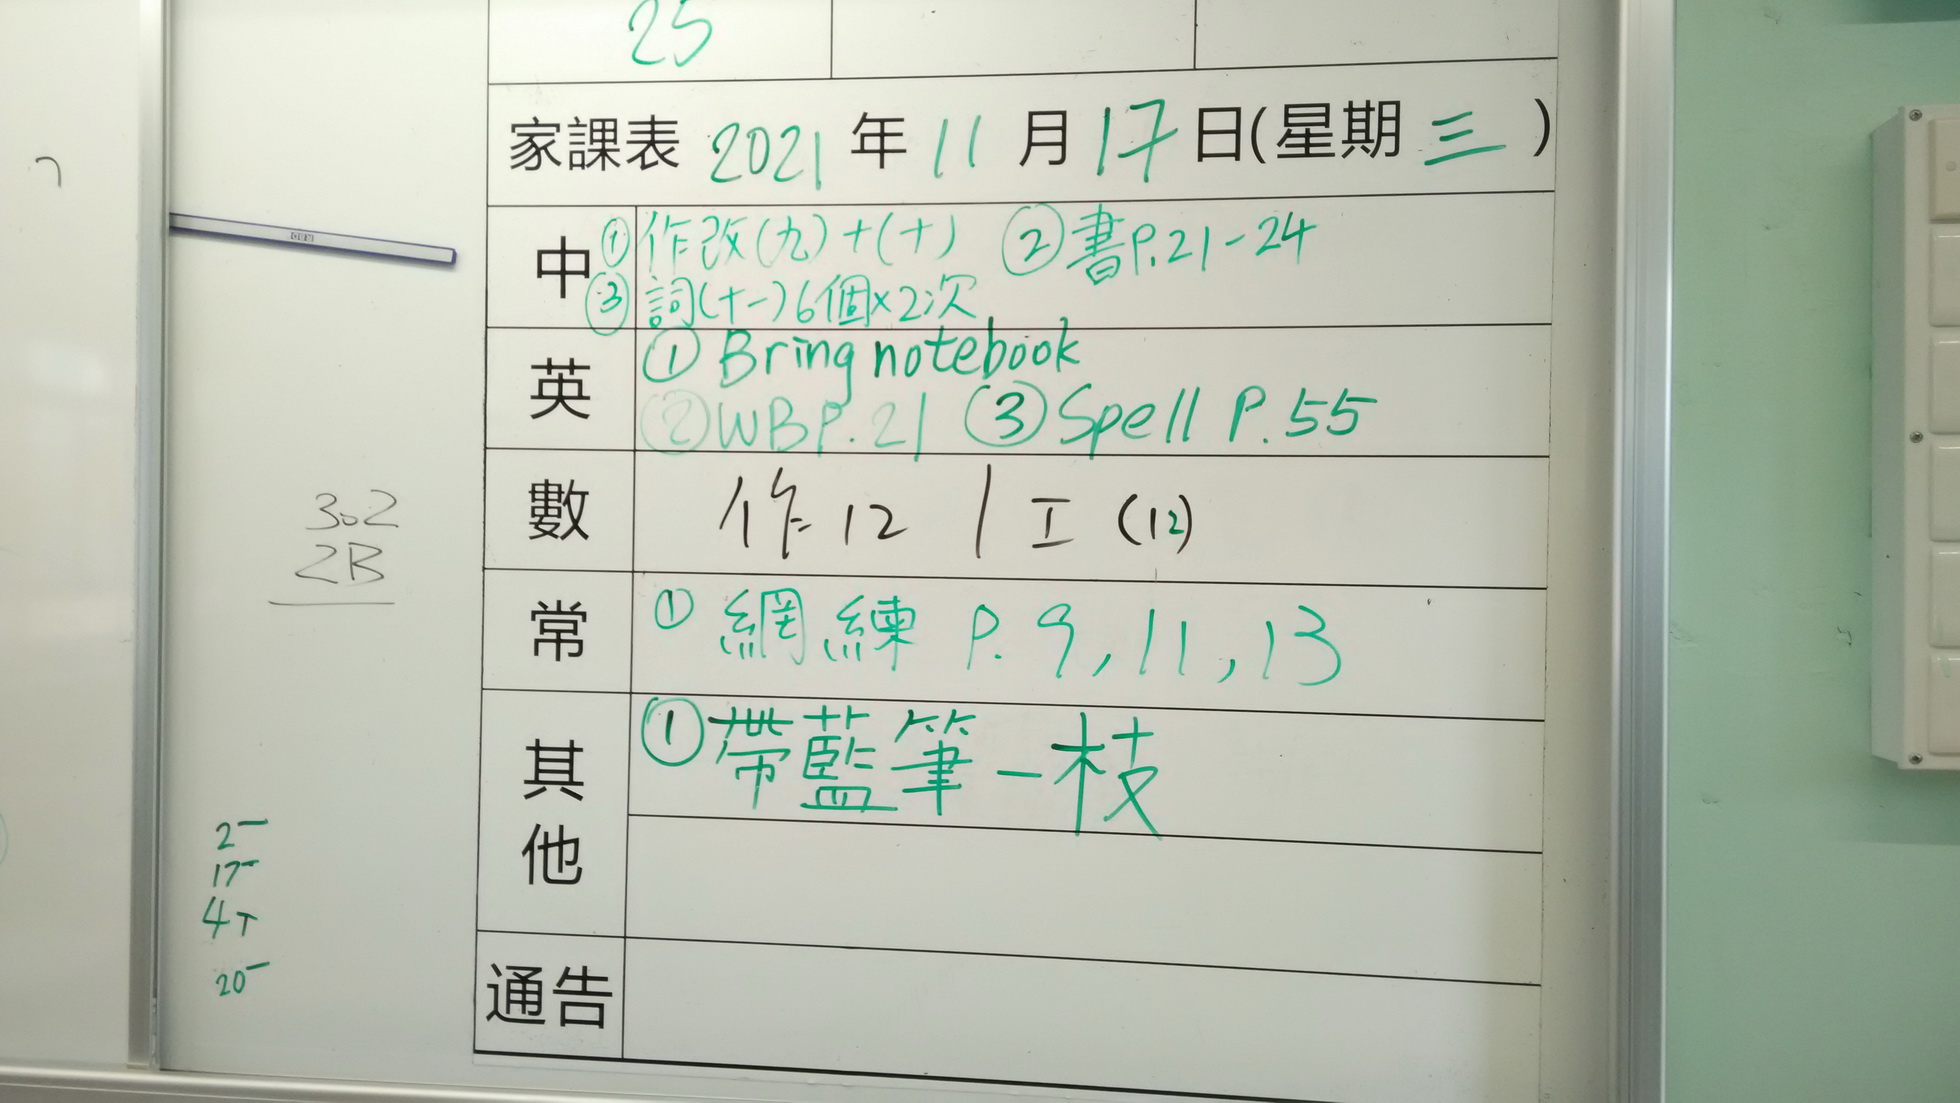 25
家課表 2021 年 11 月 17 日(星期 三 )
中 ①作改(九)+(十) ②書P.21-24
③詞(十一)6個×2次
英 ① Bring notebook
②WBP.21 ③Spell P.55
數 作 12 / 工 (12)
常 ① 網 練 P. 9, 11, 13
其他 ①帶藍筆一枝
通告
302
2B
2-
17-
4T
20-